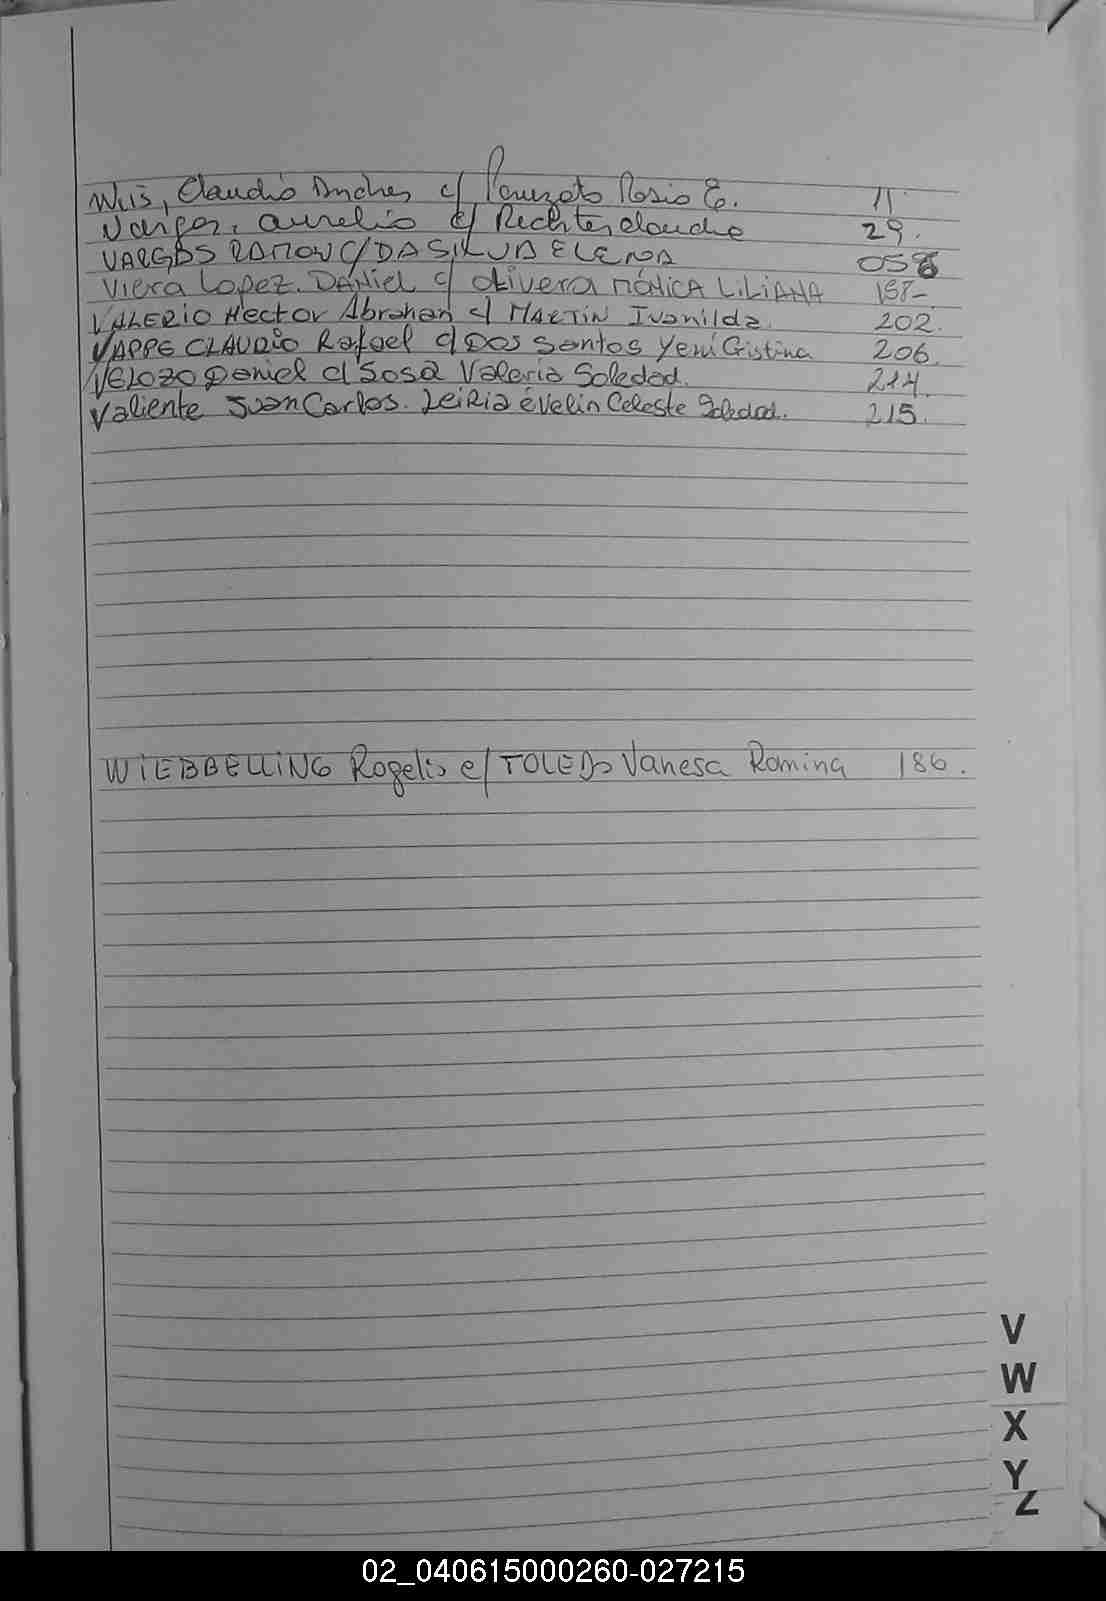 Wiis, Claudio Andres c/ Panizoto Rosio E. 11.
Vargas, Aurelio c/ Rechter Claudia 29.
VARGAS RAMON C/ DA SILVA ELENA 058
Viera Lopez. DANiel c/ Olivera MÓNiCA LiLiANA 158-
VALERIO Hector Abrahan c/ MARTIN Ivonilda. 202.
VAPPE CLAUDIO Rafael c/ Dos Santos Yeni Cristina 206.
VELOZO Daniel c/ Sosa Valeria Soledad. 214.
Valiente Juan Carlos. Leiria Evelin Celeste Soledad. 215.
WiEBBELLiNG Rogelio c/ TOLEDO Vanesa Romina 186.
V
W
X
Y
Z
02_040615000260-027215